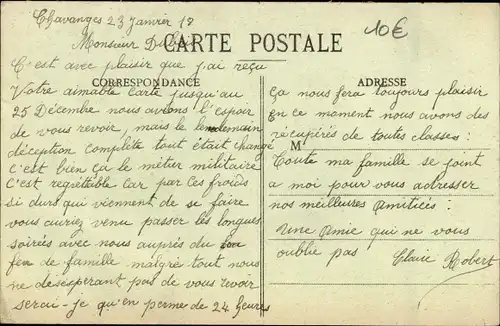 Chavanges 23 Janvier 17
10€
Monsieur
CARTE POSTALE
C'est avec plaisir que j'ai reçu
CORRESPONDANCE
ADRESSE
Votre aimable Carte jusqu'au
25 Décembre nous avions l'espoir
de vous revoir, mais le lendemain
déception complète tout était changé
C'est bien ça le métier militaire
C'est regrettable Car par ces froids
si durs qui viennent de se faire
vous auriez venu passer les longues
soirées avec nous auprès du bon
feu de famille malgré tout nous
ne desespérant pas de vous revoir
serai-je qu'en perme de 24 heures
Ça nous fera toujours plaisir
en ce moment nous avons des
récupérés de toutes classes:
M
Toute ma famille se joint
a moi pour vous adresser
nos meilleures Amitiées:
Une Amie qui ne vous
oublie pas Claire Robert